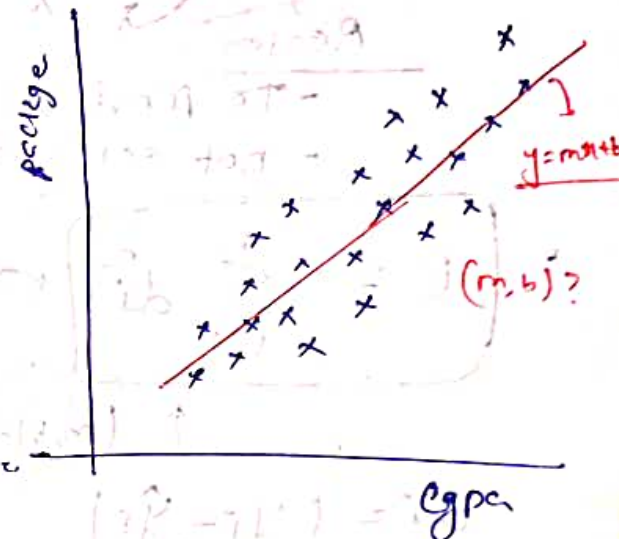 package
y=mx+b
(m, b)?
Cgpa